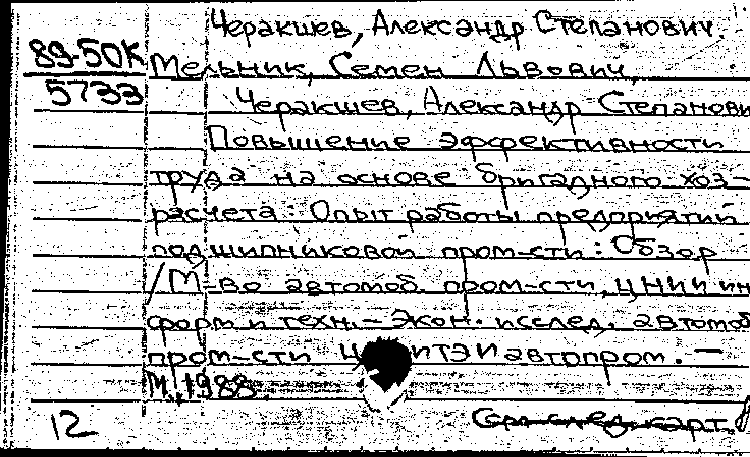 Черакшев, Александр Степанович.
89-50К
5733
Мельник, Семен Львович,
Черакшев, Александр Степанови
Повышение эффективности
труда на основе бригадного хоз-
расчета: Опыт работы предприятий
подшипниковой пром-сти: Обзор
/М-во автомоб. пром-сти, ЦНИИ ин
форм и техн.-экон. исслед. автомоб
пром-сти ЦНИИТЭИавтопром. —
М., 1988.
12
См. след. карт.